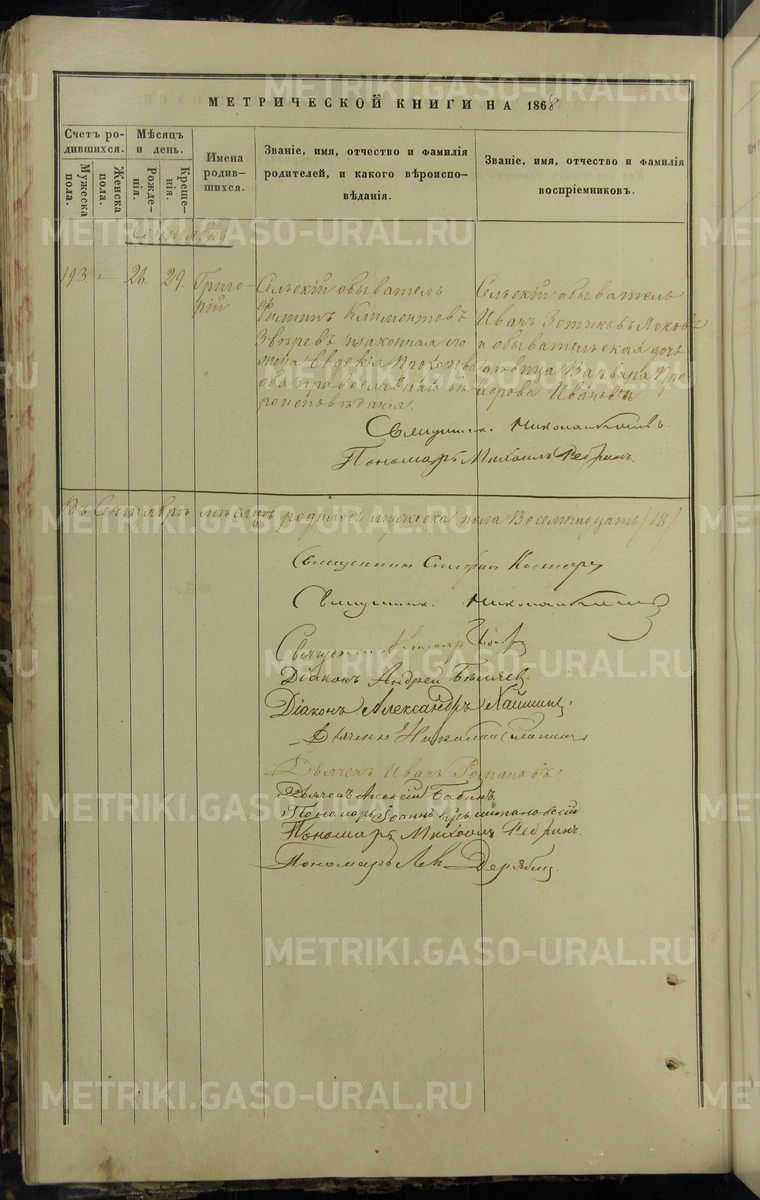 МЕТРИЧЕСКОЙ КНИГИ НА 1868
Счетъ ро-
дившихся.
Мужеска
пола.
Женска
пола.
Мѣсяцъ
и день.
Рожде-
нія.
Креще-
нія.
Имена
родив-
шихся.
Званіе, имя, отчество и фамилія
родителей, и какого вѣроиспо-
вѣданія.
Званіе, имя, отчество и фамилія
воспріемниковъ.
Сентябрь
193 - 26. 29. Григо-
рій
Сельскій обыватель
Филиппъ Климентовъ
Звѣревъ и законная его
жена Евдокія Прохоро
ва православнаго вѣ
роисповѣданія.
Сельскій обыватель
Иванъ Зотиковъ
и обывательская дочь
дѣвица Варвара Про
хорова Иванова
Священникъ Николай
Пономарь Михаилъ Ребринъ.
Въ Сентябрѣ мѣсяцѣ родилось мужеска пола Восемнадцать /18/
Священникъ Стефанъ
Священникъ Николай
Священникъ
Діаконъ Андрей Бѣляев
Діаконъ Александръ
Дьячекъ Николай
Дьячекъ Иванъ Романовъ
Дьячекъ Алексій Бабинъ
Пономарь Іоаннъ
Пономарь Михаилъ Ребринъ
Пономарь Лев Дерябин
METRIKI.GASO-URAL.RU